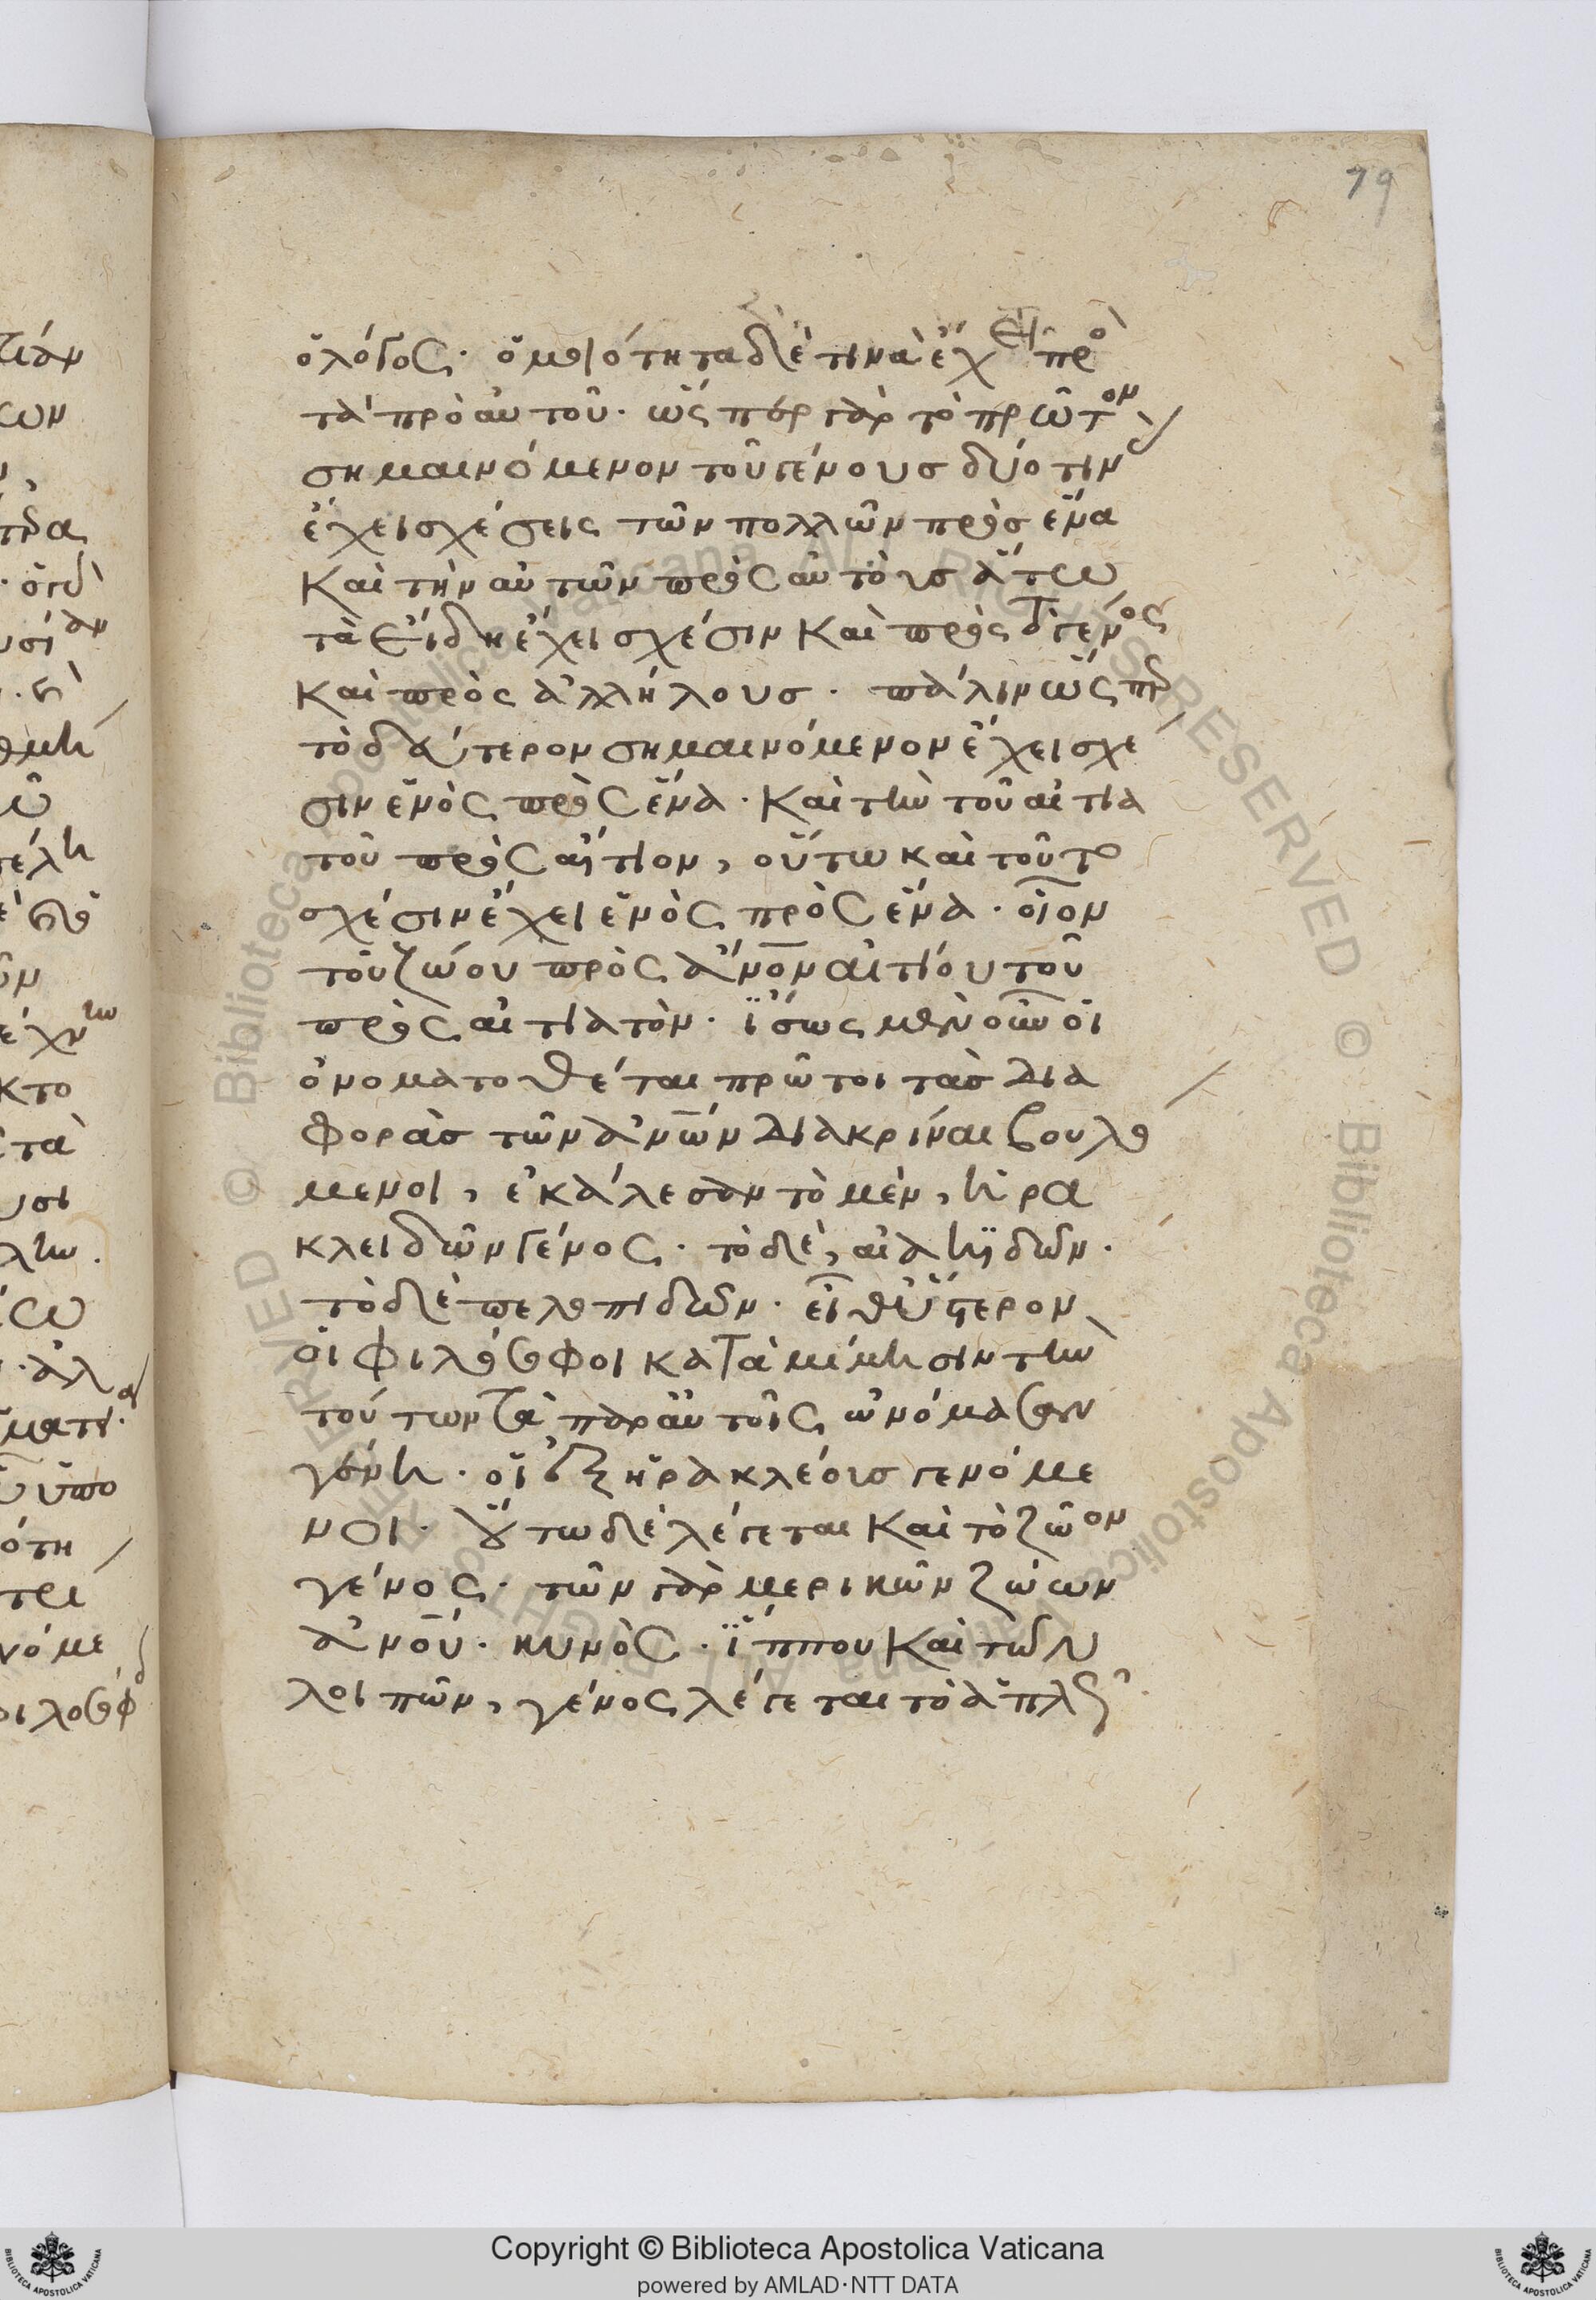 79
ὁ λόγος· ὁμοιότητα δὲ τινὰ ἔχει πρὸ
τὰ πρὸ αὐτοῦ· ὥσπερ γὰρ τὸ πρῶτον
σημαινόμενον τοῦ γένους δύο τιν
ἔχει σχέσεις τῶν πολλῶν πρὸς ἕνα
καὶ τὴν αὐτῶν πρὸς αὐτοὺς οὕτω
τὰ εἴδη ἔχει σχέσιν καὶ πρὸς τὸ γένος
καὶ πρὸς ἀλλήλους· πάλιν ὥσπερ
τὸ δεύτερον σημαινόμενον ἔχει σχε
σιν ἑνὸς πρὸς ἕνα· καὶ τὴν τοῦ αἰτια
τοῦ πρὸς αἴτιον, οὕτω καὶ τοῦτο
σχέσιν ἔχει ἑνὸς πρὸς ἕνα· οἷον
τοῦ ζώου πρὸς ἄνον αἰτίου τοῦ
πρὸς αἰτιατὸν· ἴσως μὲν οὖν οἱ
ὀνοματοθέται πρῶτοι τὰς δια
φορὰς τῶν ἀνων διακρίναι βουλο
μενοι, ἐκάλεσαν τὸ μὲν, ἡρα
κλειδῶν γένος· τὸ δὲ, αἰακηϊδῶν·
τὸ δὲ πελοπιδῶν· εἶθ ὕστερον
οἱ φιλόσοφοι κατὰ μίμησιν τὴν
τούτων τὰ παρ αὐτοῖς ὠνόμασαν
γένη· οἱ ἐξ ἡρακλέους γενόμε
νοι· οὕτω δὲ λέγεται καὶ τὸ ζῶον
γένος· τῶν γὰρ μερικῶν ζώων
ἀνου· κυνὸς· ἵππου καὶ τῶν
λοιπῶν, γένος λέγεται τὸ ἁπλῶς
Copyright © Biblioteca Apostolica Vaticana
powered by AMLAD·NTT DATA